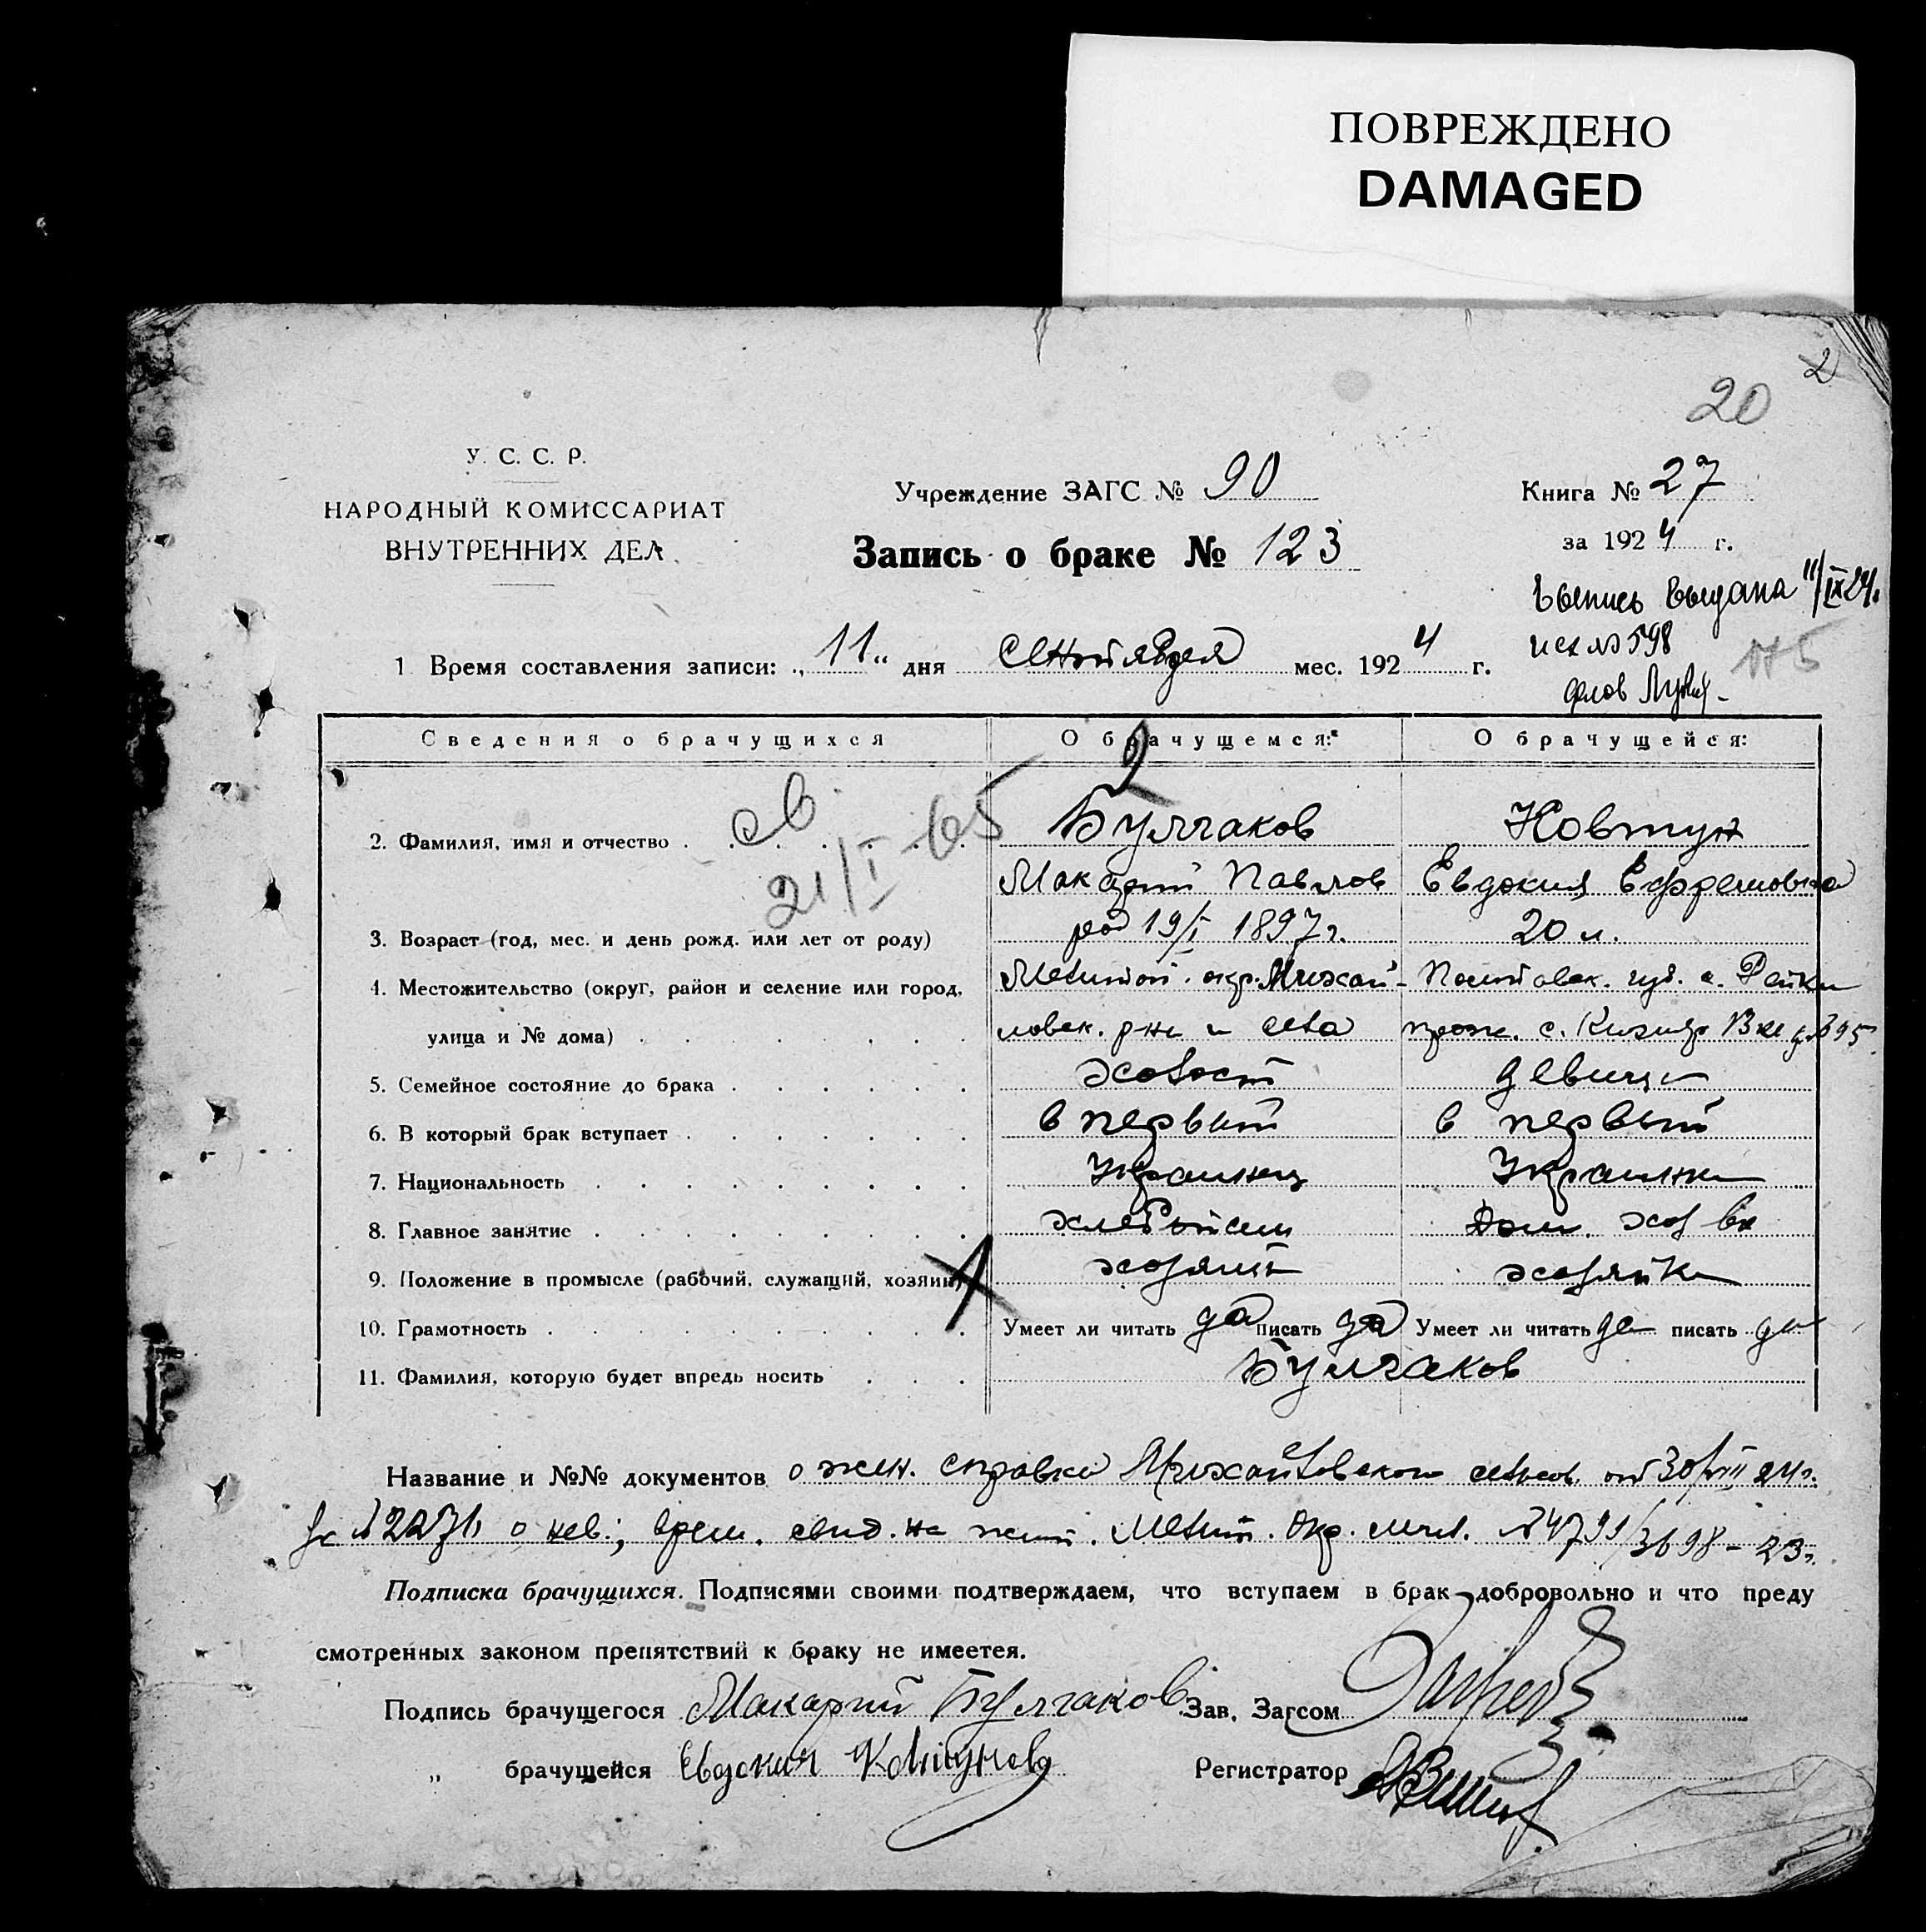 ПОВРЕЖДЕНО
DAMAGED
2
20
У. С. С. Р.
НАРОДНЫЙ КОМИССАРИАТ
ВНУТРЕННИХ ДЕЛ.
Учреждение ЗАГС № 90
Книга № 27
за 1924 г.
Запись о браке № 123
Выпись выдана 11/IX 24.
исх № 598
1 Время составления записи: „11“ дня Сентября мес. 1924 г.
Сведения о брачущихся
О брачущемся:
О брачущейся:
2
св
21/I-65
2. Фамилия, имя и отчество
Булгаков
Ковтун
Макарий Павлов
Евдокия Ефремовна
3. Возраст (год, мес. и день рожд. или лет от роду)
род 19/I 1897 г.
20 л.
4. Местожительство (округ, район и селение или город,
Мелитоп. окр. Михай-
Полтавск. губ. с.
улица и № дома)
ловск. р-на и села
прож. с. Кизияр
5. Семейное состояние до брака
холост
девица
6. В который брак вступает
в первый
в первый
7. Национальность
Украинец
Украинка
8. Главное занятие
хлебопаш
Дом. хоз во
9. Положение в промысле (рабочий, служащий, хозяин)
хозяин
хозяйка
10. Грамотность
Умеет ли читать да писать да
Умеет ли читать да писать да
11. Фамилия, которую будет впредь носить
Булгаков
Название и №№ документов о жен. справка Михайловского сельсов. от 30/VIII 24 г.
за № 2271 о нев.; врем. свид. на жит. Мелит. Окр. мил. № 4791/3698 - 23 г.
Подписка брачущихся. Подписями своими подтверждаем, что вступаем в брак добровольно и что преду
смотренных законом препятствий к браку не имеется.
Подпись брачущегося Макарий Булгаков
Зав. Загсом
„ брачущейся Евдокия Ковтунова
Регистратор